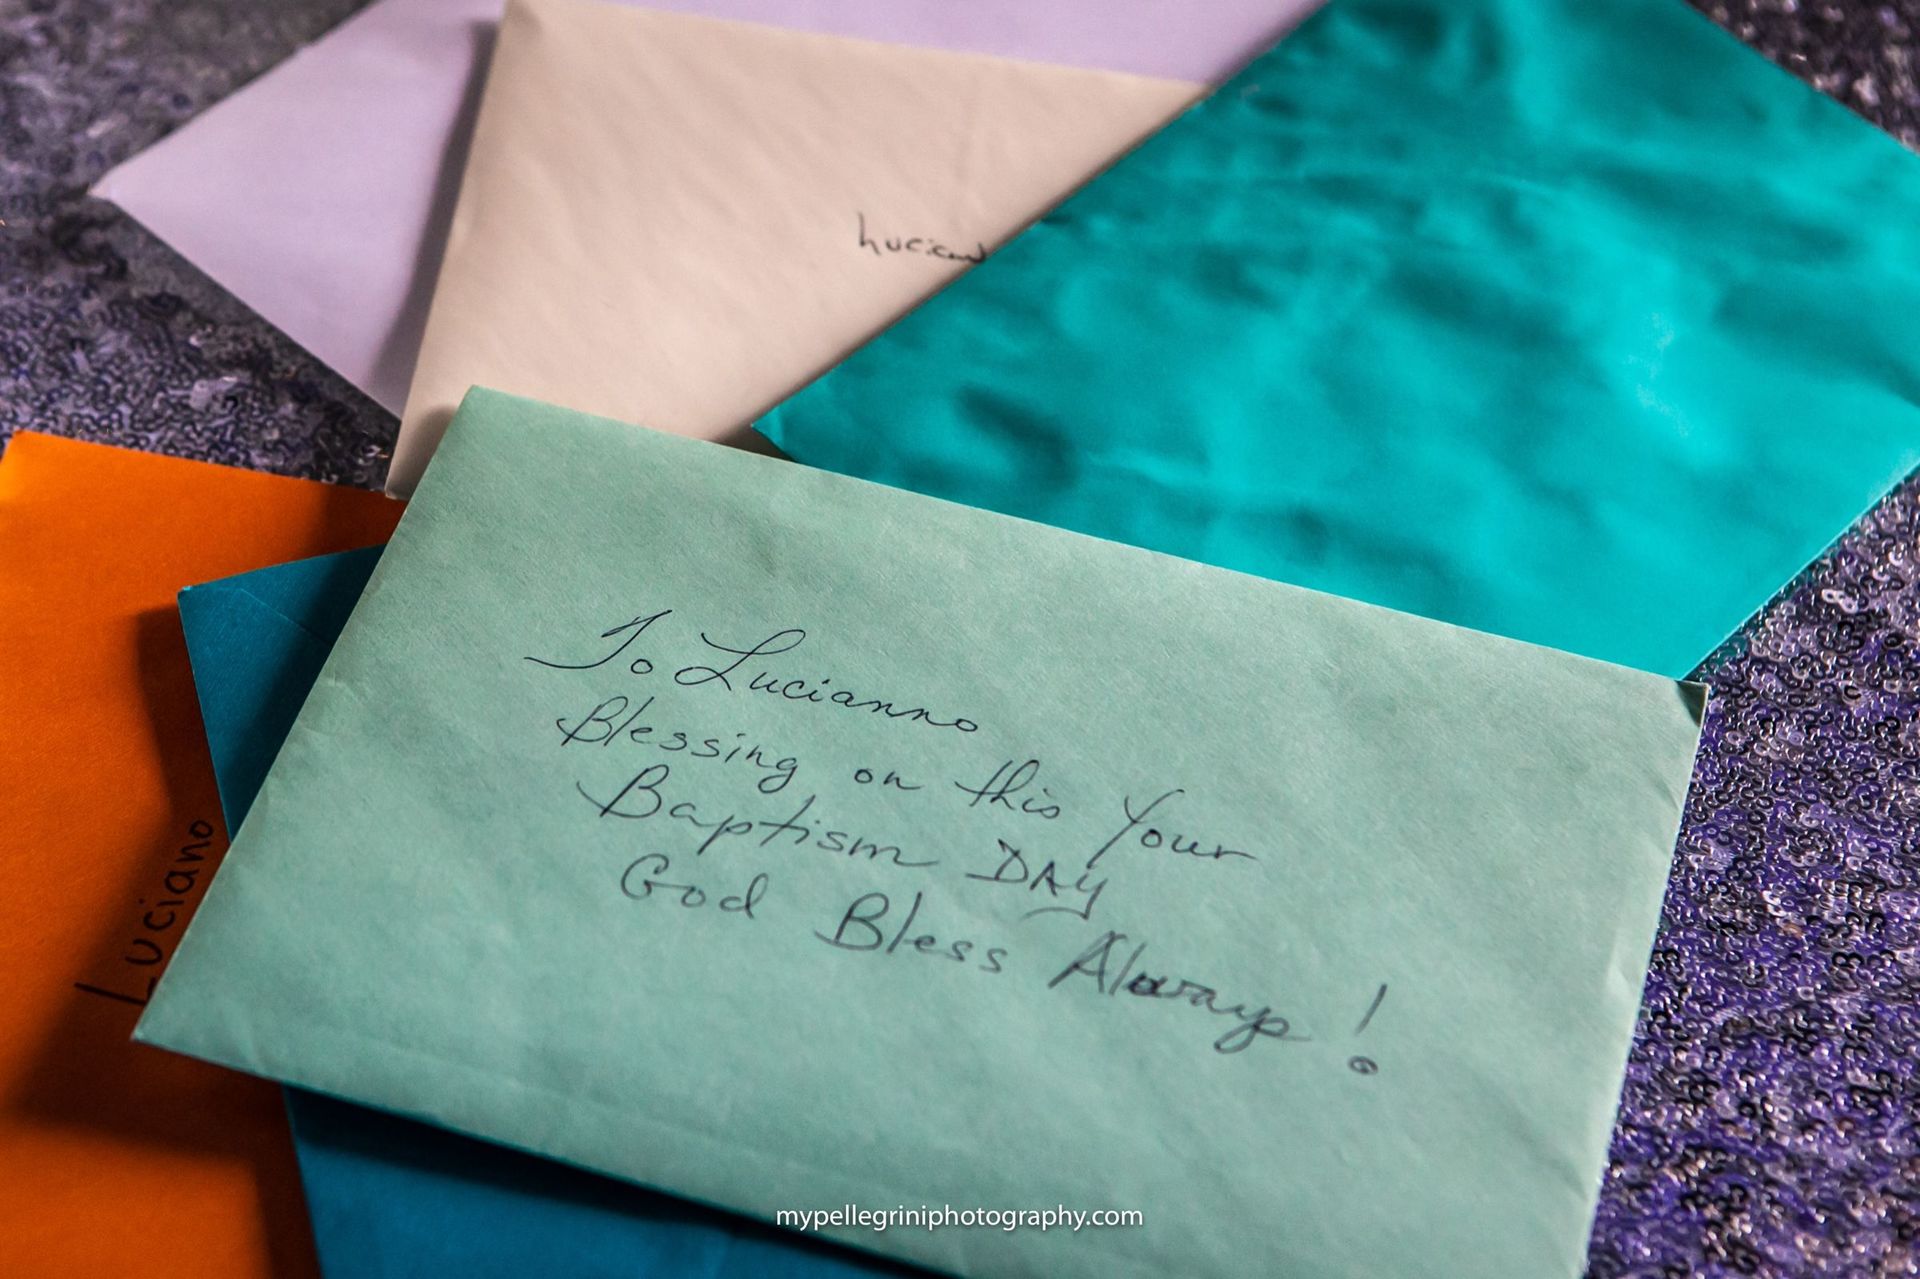 To Lucianno
Blessing on this Your
Baptism DAY
God Bless Always!
Luciano
mypellegriniphotography.com